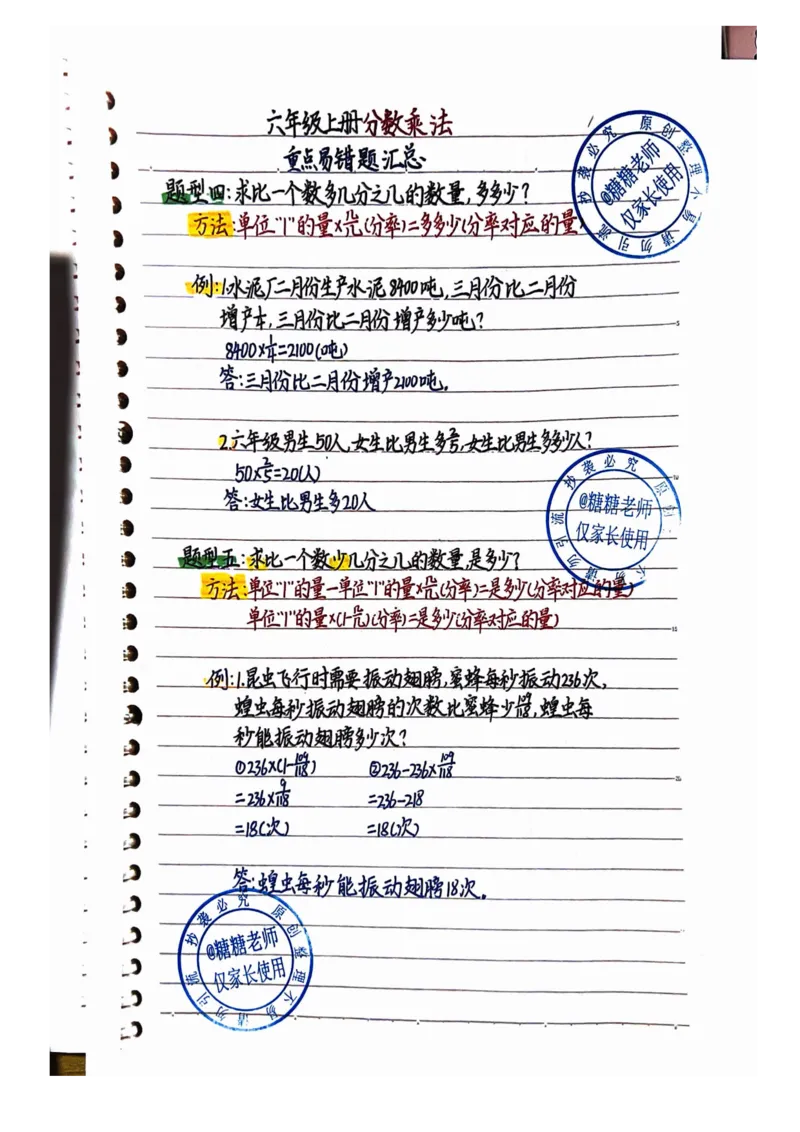 六年级上册分数乘法
重点易错题汇总
题型四:求比一个数多几分之几的数量,多多少?
方法:单位"1"的量×几/几(分率)=多多少(分率对应的量)
例:1.水泥厂二月份生产水泥8400吨,三月份比二月份
增产1/4,三月份比二月份增产多少吨?
8400×1/4=2100(吨)
答:三月份比二月份增产2100吨。
2.六年级男生50人,女生比男生多2/5,女生比男生多多少人?
50×2/5=20(人)
答:女生比男生多20人
题型五:求比一个数少几分之几的数量,是多少?
方法:单位"1"的量-单位"1"的量×几/几(分率)=是多少(分率对应的量)
单位"1"的量×(1-几/几)(分率)=是多少(分率对应的量)
例:1.昆虫飞行时需要振动翅膀,蜜蜂每秒振动236次,
蝗虫每秒振动翅膀的次数比蜜蜂少109/118,蝗虫每
秒能振动翅膀多少次?
①236×(1-109/118) ②236-236×109/118
=236×9/118 =236-218
=18(次) =18(次)
答:蝗虫每秒能振动翅膀18次。
抄袭必究 原创整理不易 请勿引流
@糖糖老师
仅家长使用
抄袭必究 原创 不易 请勿引流
@糖糖老师
仅家长使用
抄袭必究 原创整理不易 请勿引流
@糖糖老师
仅家长使用